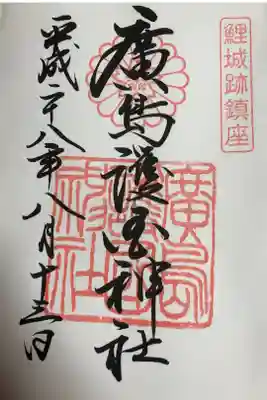 鯉城跡鎮座
廣島護国神社
廣島護國神社
平成二十八年八月十三日